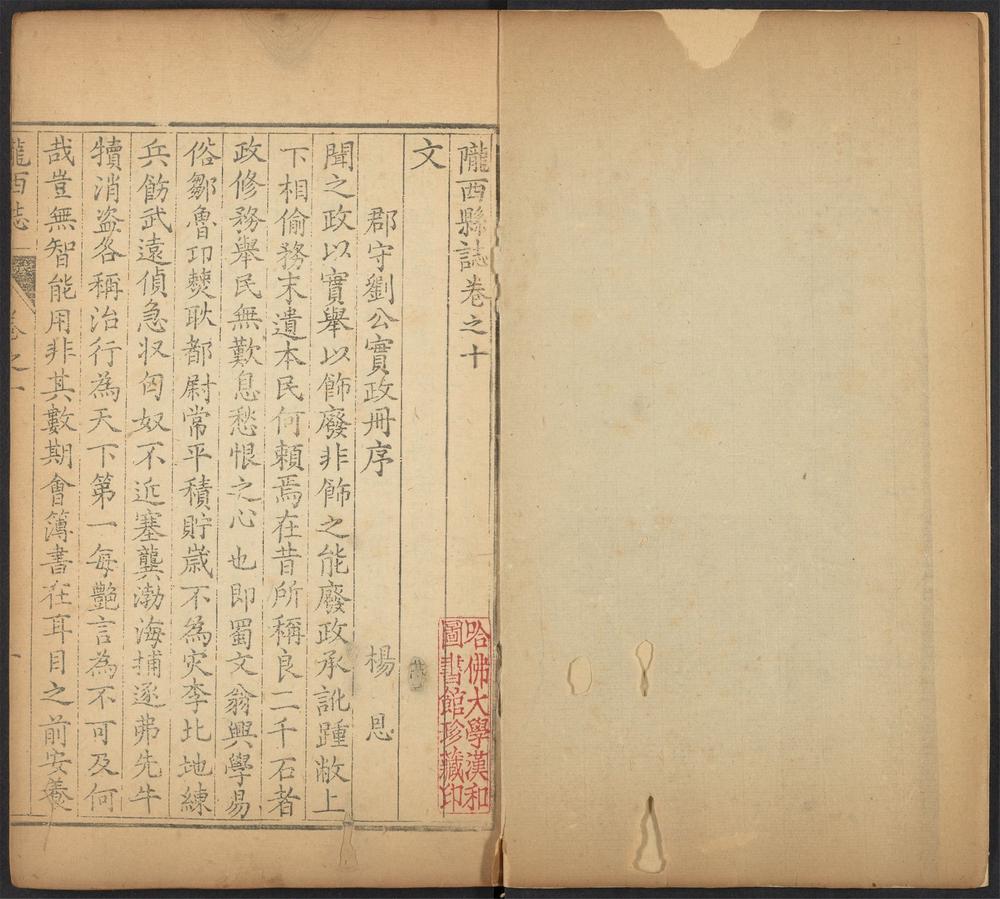 隴西縣誌卷之十
文
郡守劉公實政冊序
楊恩
聞之政以實舉以飾廢非飾之能廢政承訛踵敝上
下相偷務末遺本民何頼焉在昔所稱良二千石者
政修務舉民無歎息愁恨之心也即蜀文翁興學易
俗鄒魯卭僰耿都尉常平積貯歲不為灾李北地練
兵飭武遠偵急収匈奴不近塞龔渤海捕逐弗先牛
犢消盗各稱治行為天下第一每艷言為不可及何
哉豈無智能用非其數期會簿書在耳目之前安養
隴西誌
卷之十
哈佛大學漢和
圖書館珍藏印